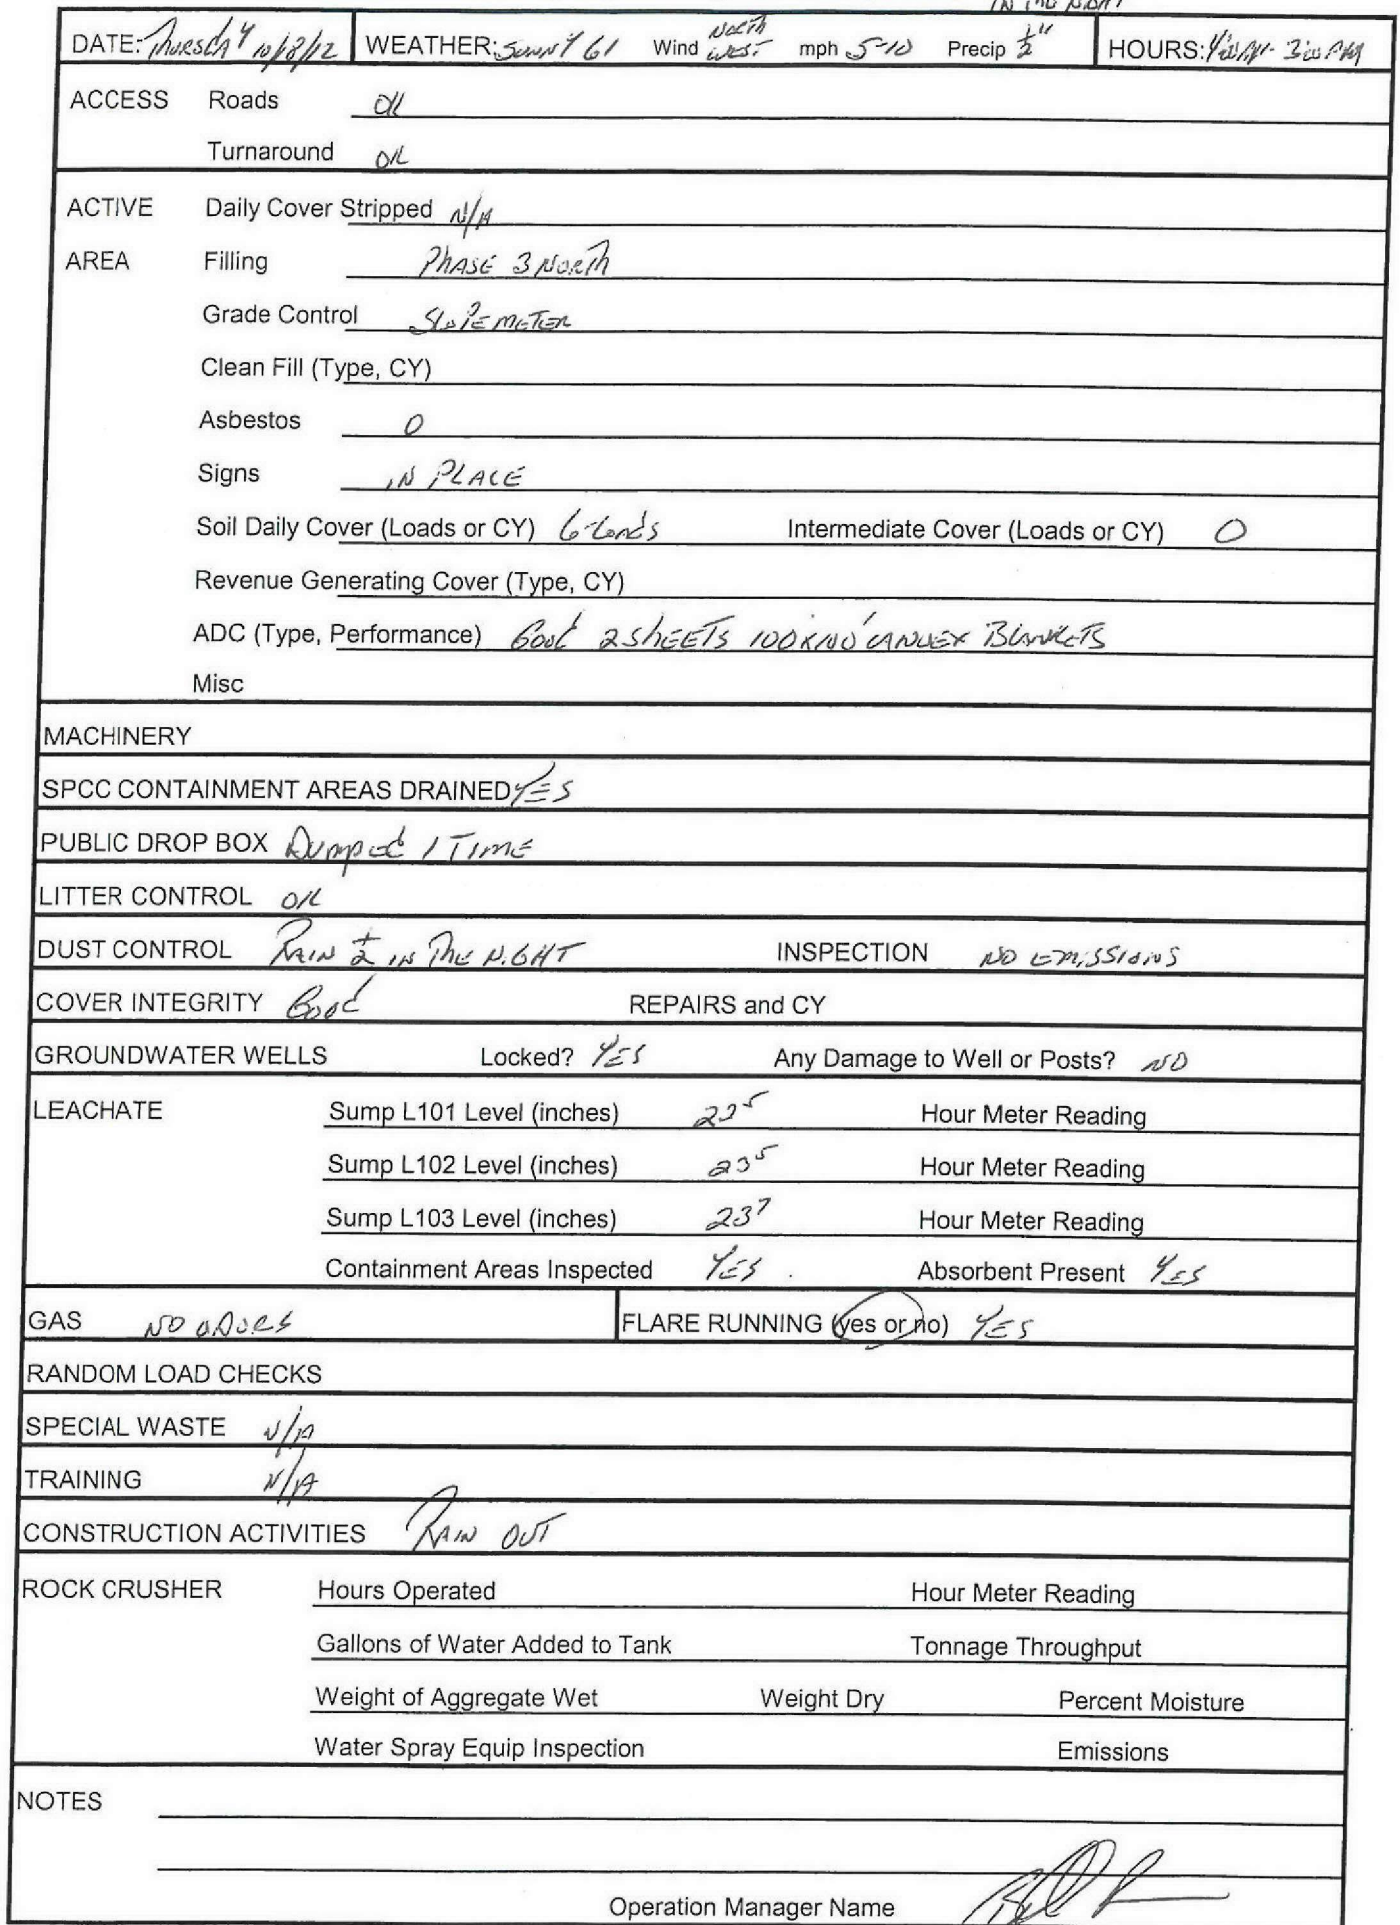 IN THE NIGHT
DATE: THURSDAY 10/18/12 WEATHER: SUNNY 61 Wind NORTH WEST mph 5-10 Precip 1/2" HOURS: 3:00 PM
ACCESS Roads OK
Turnaround OK
ACTIVE Daily Cover Stripped N/A
AREA Filling PHASE 3 NORTH
Grade Control SLOPEMETER
Clean Fill (Type, CY)
Asbestos 0
Signs IN PLACE
Soil Daily Cover (Loads or CY) 6-Loads Intermediate Cover (Loads or CY) 0
Revenue Generating Cover (Type, CY)
ADC (Type, Performance) Good 2 SHEETS BLANKETS
Misc
MACHINERY
SPCC CONTAINMENT AREAS DRAINED YES
PUBLIC DROP BOX Dumped 1 TIME
LITTER CONTROL OK
DUST CONTROL RAIN 1/2 IN THE NIGHT INSPECTION NO EMISSIONS
COVER INTEGRITY Good REPAIRS and CY
GROUNDWATER WELLS Locked? YES Any Damage to Well or Posts? NO
LEACHATE Sump L101 Level (inches) 22⁵ Hour Meter Reading
Sump L102 Level (inches) 23⁵ Hour Meter Reading
Sump L103 Level (inches) 23⁷ Hour Meter Reading
Containment Areas Inspected YES. Absorbent Present YES
GAS NO ODORS FLARE RUNNING (yes or no) YES
RANDOM LOAD CHECKS
SPECIAL WASTE N/A
TRAINING N/A
CONSTRUCTION ACTIVITIES RAIN OUT
ROCK CRUSHER Hours Operated Hour Meter Reading
Gallons of Water Added to Tank Tonnage Throughput
Weight of Aggregate Wet Weight Dry Percent Moisture
Water Spray Equip Inspection Emissions
NOTES
Operation Manager Name